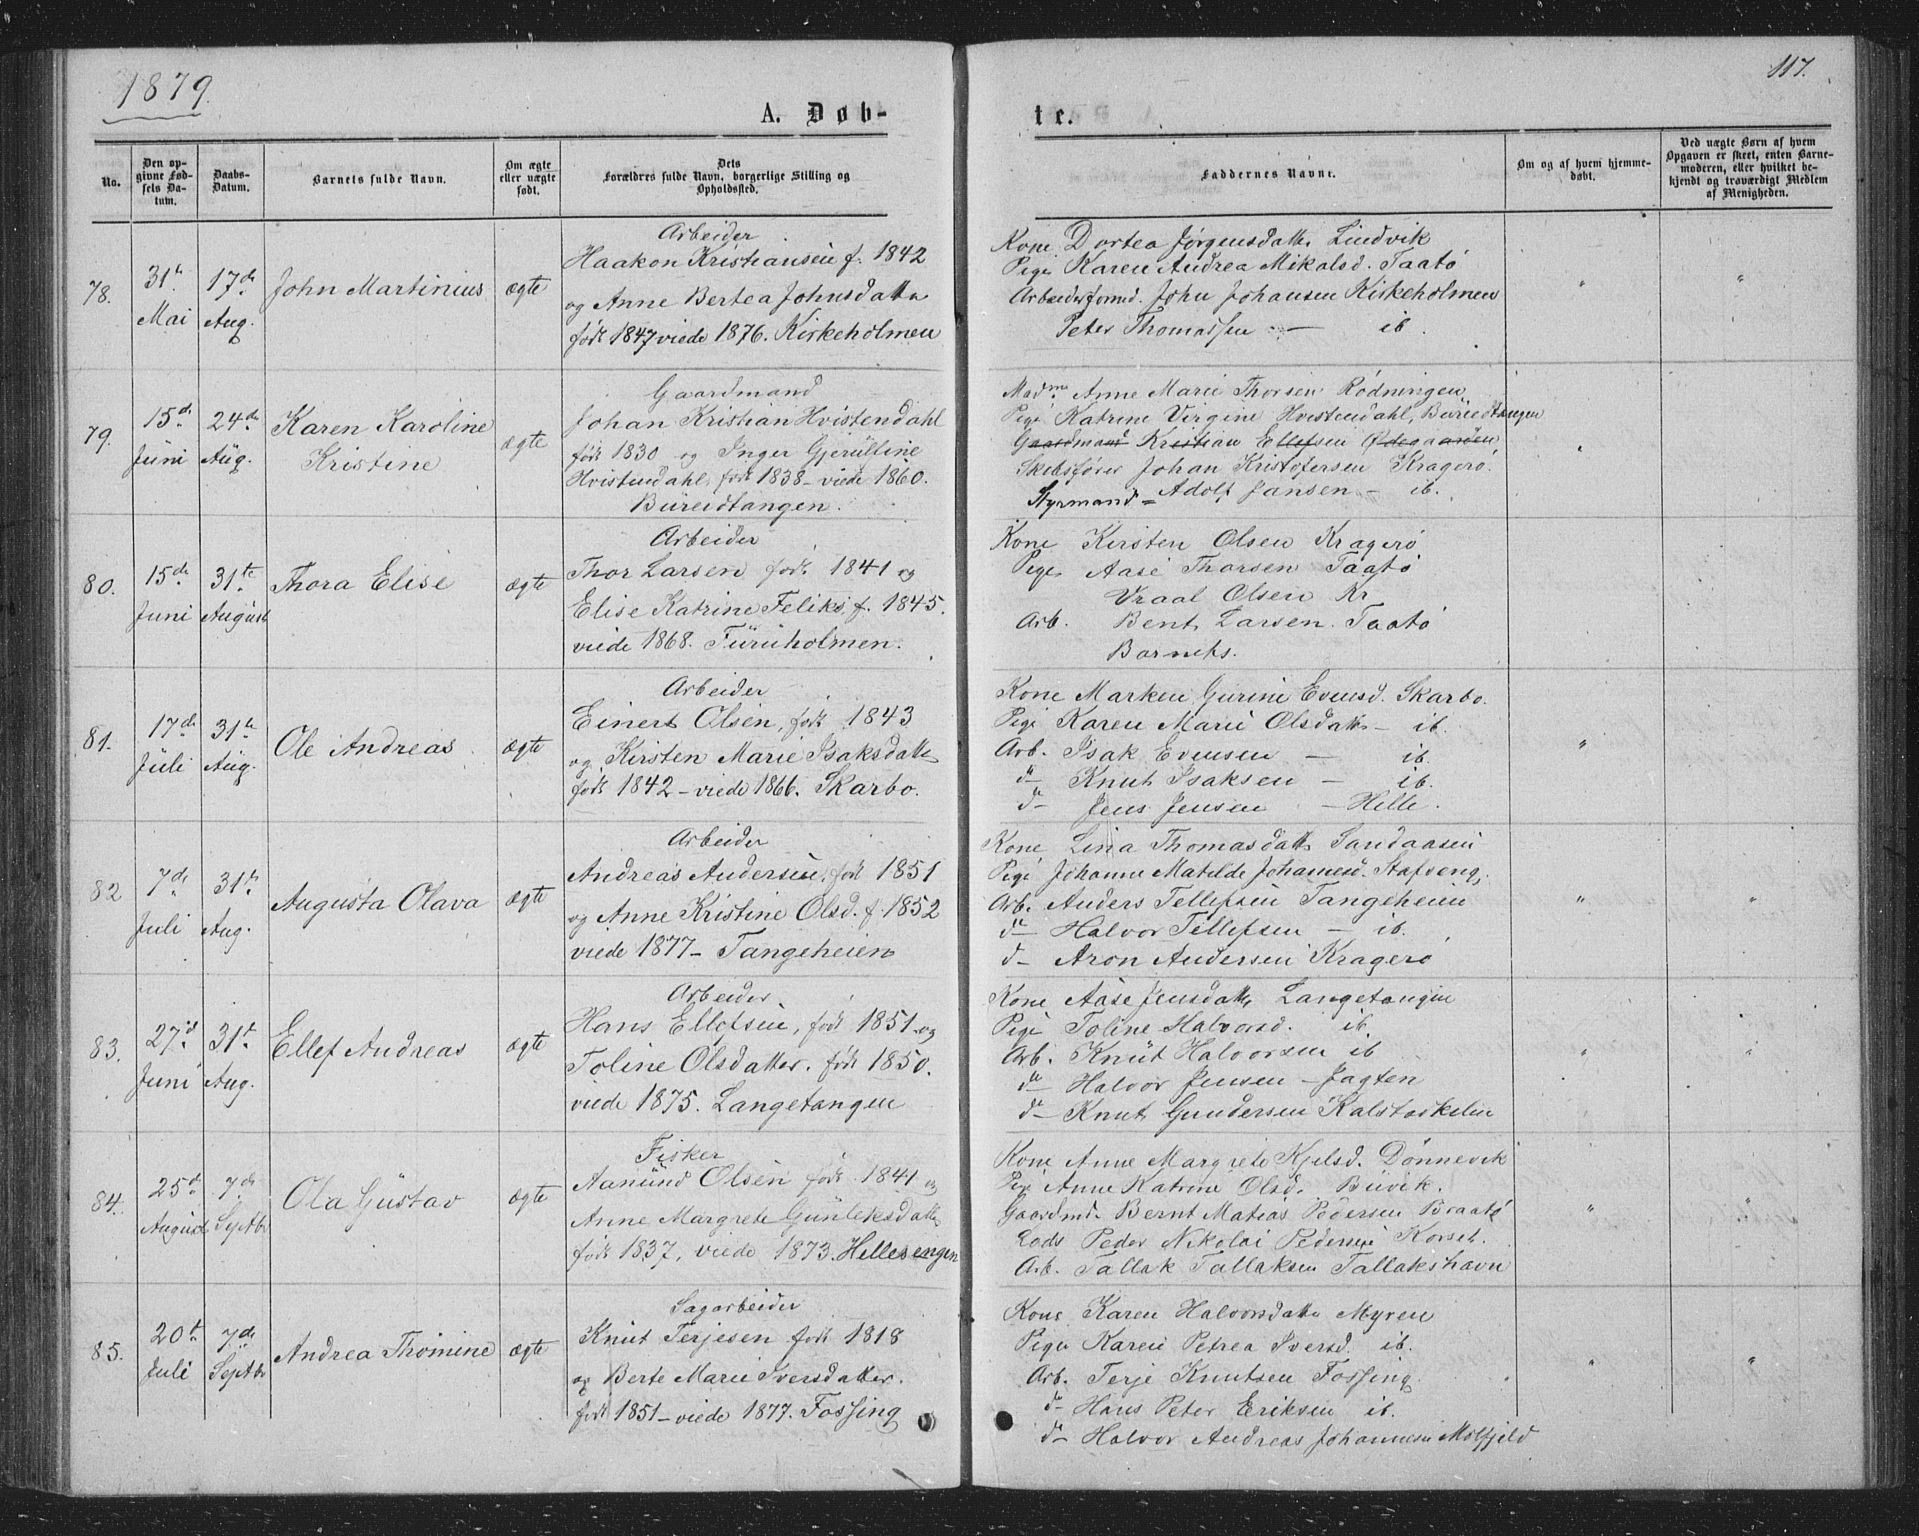 1879.
117.
A. Døb-
te.
No.
Den op-
givne Fød-
sels Da-
tum.
Daabs-
Datum.
Barnets fulde Navn.
Om ægte
eller uægte
født.
Dets
Forældres fulde Navn, borgerlige Stilling og
Opholdssted.
Faddernes Navne.
Om og af hvem hjemme-
døbt.
Ved uægte Børn af hvem
Opgaven er skeet, enten Barne-
moderen, eller hvilket be-
kjendt og troværdigt Medlem
af Menigheden.
78.
31te
Mai
17de
Aug.
John Martinius
ægte
Arbeider
Haakon Kristiansen f. 1842
og Anne Bertea Johnsdatter
født 1847 viede 1876. Kirkeholmen
Kone Dortea Jørgensdattr Lindvik
Pige Karen Andrea Mikalsd. Taatø
Arbeiderformd. John Johansen Kirkeholmen
Peter Thomassen — ib.
"
"
79.
15de
Juni
24de
Aug.
Karen Karoline
Kristine
ægte
Gaardmand
Johan Kristian Hvistendahl
født 1830 og Inger Gjerultine
Hvistendahl, født 1838 - viede 1860.
Bureidtangen.
Madme Anne Marie Thorsen Rødningen
Pige Katrine Virgine Hvistendahl, Bureidtangen
Gaardmand Kristian Ellefsen Ødegaarden
Skibsfører Johan Kristofersen Kragerø.
Styrmand - Adolf Jansen - ib.
"
80.
15de
Juni
31te
August
Thora Elise
ægte
Arbeider
Thor Larsen født 1841 og
Elise Katrine Feliks. f. 1845.
viede 1868. Furuholmen.
Kone Kirsten Olsen Kragerø
Pige Aase Thorsen Taatø
Vraal Olsen Kr
Arb. Bent Larsen. Taatø
Barnets.
81.
17de
Juli
31te
Aug.
Ole Andreas
ægte
Arbeider
Einert Olsen, født 1843
og Kirsten Marie Isaksdatter
født 1842 - viede 1866. Skarbo.
Kone Marken Gurine Evensd. Skarbo.
Pige Karen Marie Olsdattr - ib.
Arb. Isak Evensen - ib.
do Knut Isaksen - ib.
do Jens Jensen - Helle.
"
82
7de
Juli
31te
Aug.
Augusta Olava
ægte
Arbeider
Andreas Andersen, født 1851
og Anne Kristine Olsd. f. 1852
viede 1877 - Tangeheien
Kone Lina Thomasdattr Sandaasen
Pige Johanne Matilde Johannesd. Stafseng.
Arb. Anders Tellefsen Tangeheien
do Halvor Tellefsen - ib.
d- Aron Andersen Kragerø
"
"
83.
27d
Juni
31t
Aug.
Ellef Andreas
ægte
Arbeider
Hans Ellefsen, født 1851 og
Toline Olsdatter. født 1850.
viede 1875. Langetangen
Kone Aase Jensdattr Langetangen
Pige Toline Halvorsd. ib.
Arb. Knut Halvorsen ib
do Halvor Jensen - Jagten
do Knut Gundersen Kalstadkilen
"
"
84.
25de
August
7de
Septbr
Ola Gustav
ægte
Fisker
Aanund Olsen født 1841 og
Anne Margrete Gunleksdatter
født 1837, viede 1873. Hellesengen
Kone Anne Margrete Kjelsd. Dønnevik
Pige Anne Katrine Olsd. Buvik.
Gaardmd. Bernt Matias Pedersen Braatø
Lods Peder Nikolai Pedersen Korset.
Arb. Tallak Tallaksen Tallakshavn
"
"
85.
20t
Juli
7de
Septbr
Andrea Thomine
ægte
Sagarbeider
Knut Terjesen født 1818
og Berte Marie Iversdatter.
født 1851 - viede 1877. Fossing
Kone Karen Halvorsdattr Myren
Pige Karen Petrea Iversd. ib.
Arb. Terje Knutsen Fossing
d- Hans Peter Eriksen ib.
d- Halvor Andreas Johannesen Molfjeld
"
"